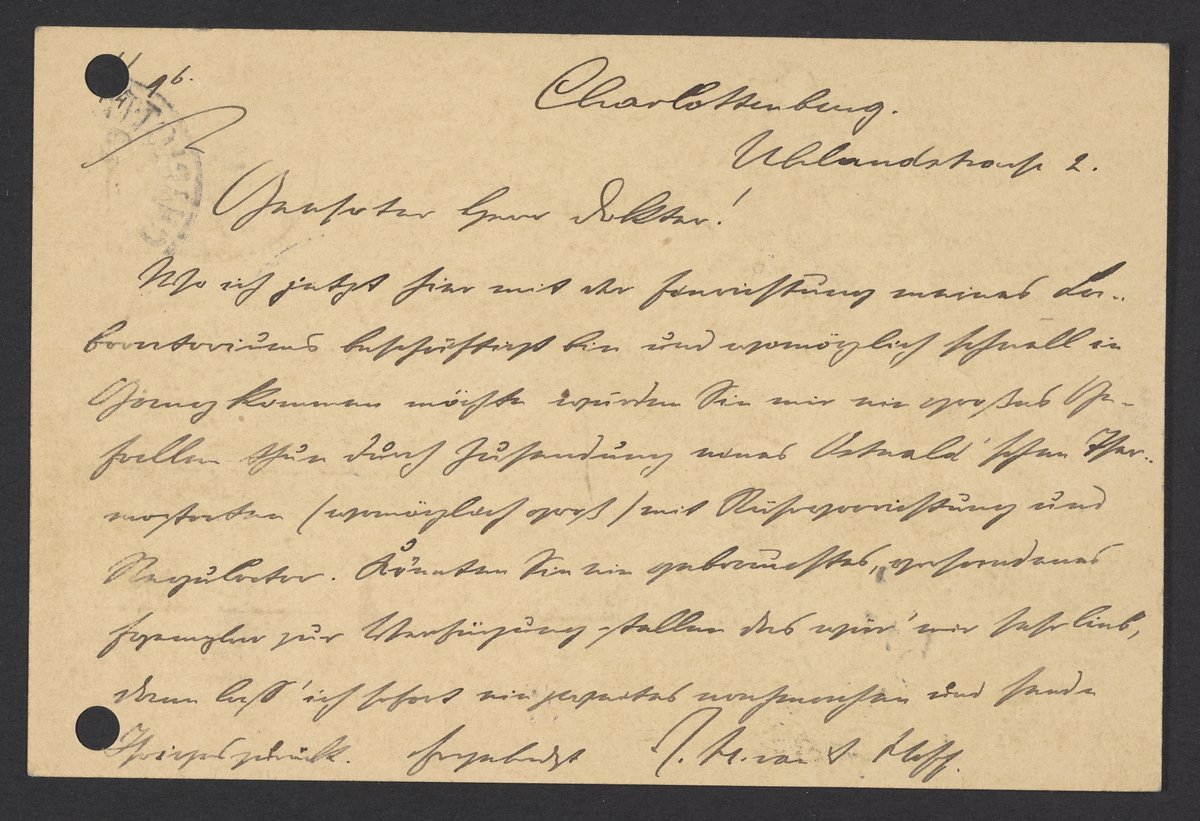 16.
Charlottenburg.
Uhlandstrasse 2.
Geehrter Herr Doktor!
Wo ich jetzt hier mit der Einrichtung meines La-
boratoriums beschäftigt bin und womöglich schnell in
Gang kommen möchte würden Sie mir ein großes Ge-
fallen thun durch Zusendung eines Ostwald'schen Ther-
mostaten (womöglich groß) mit Rührvorrichtung und
Regulator. Könnten Sie ein gebrauchtes, vorhandenes
Exemplar zur Verfügung stellen das wär' mir sehr lieb,
dann lass' ich sofort ein zweites nachmachen und sende
Ihriges zurück. Ergebenst J. H. van 't Hoff.